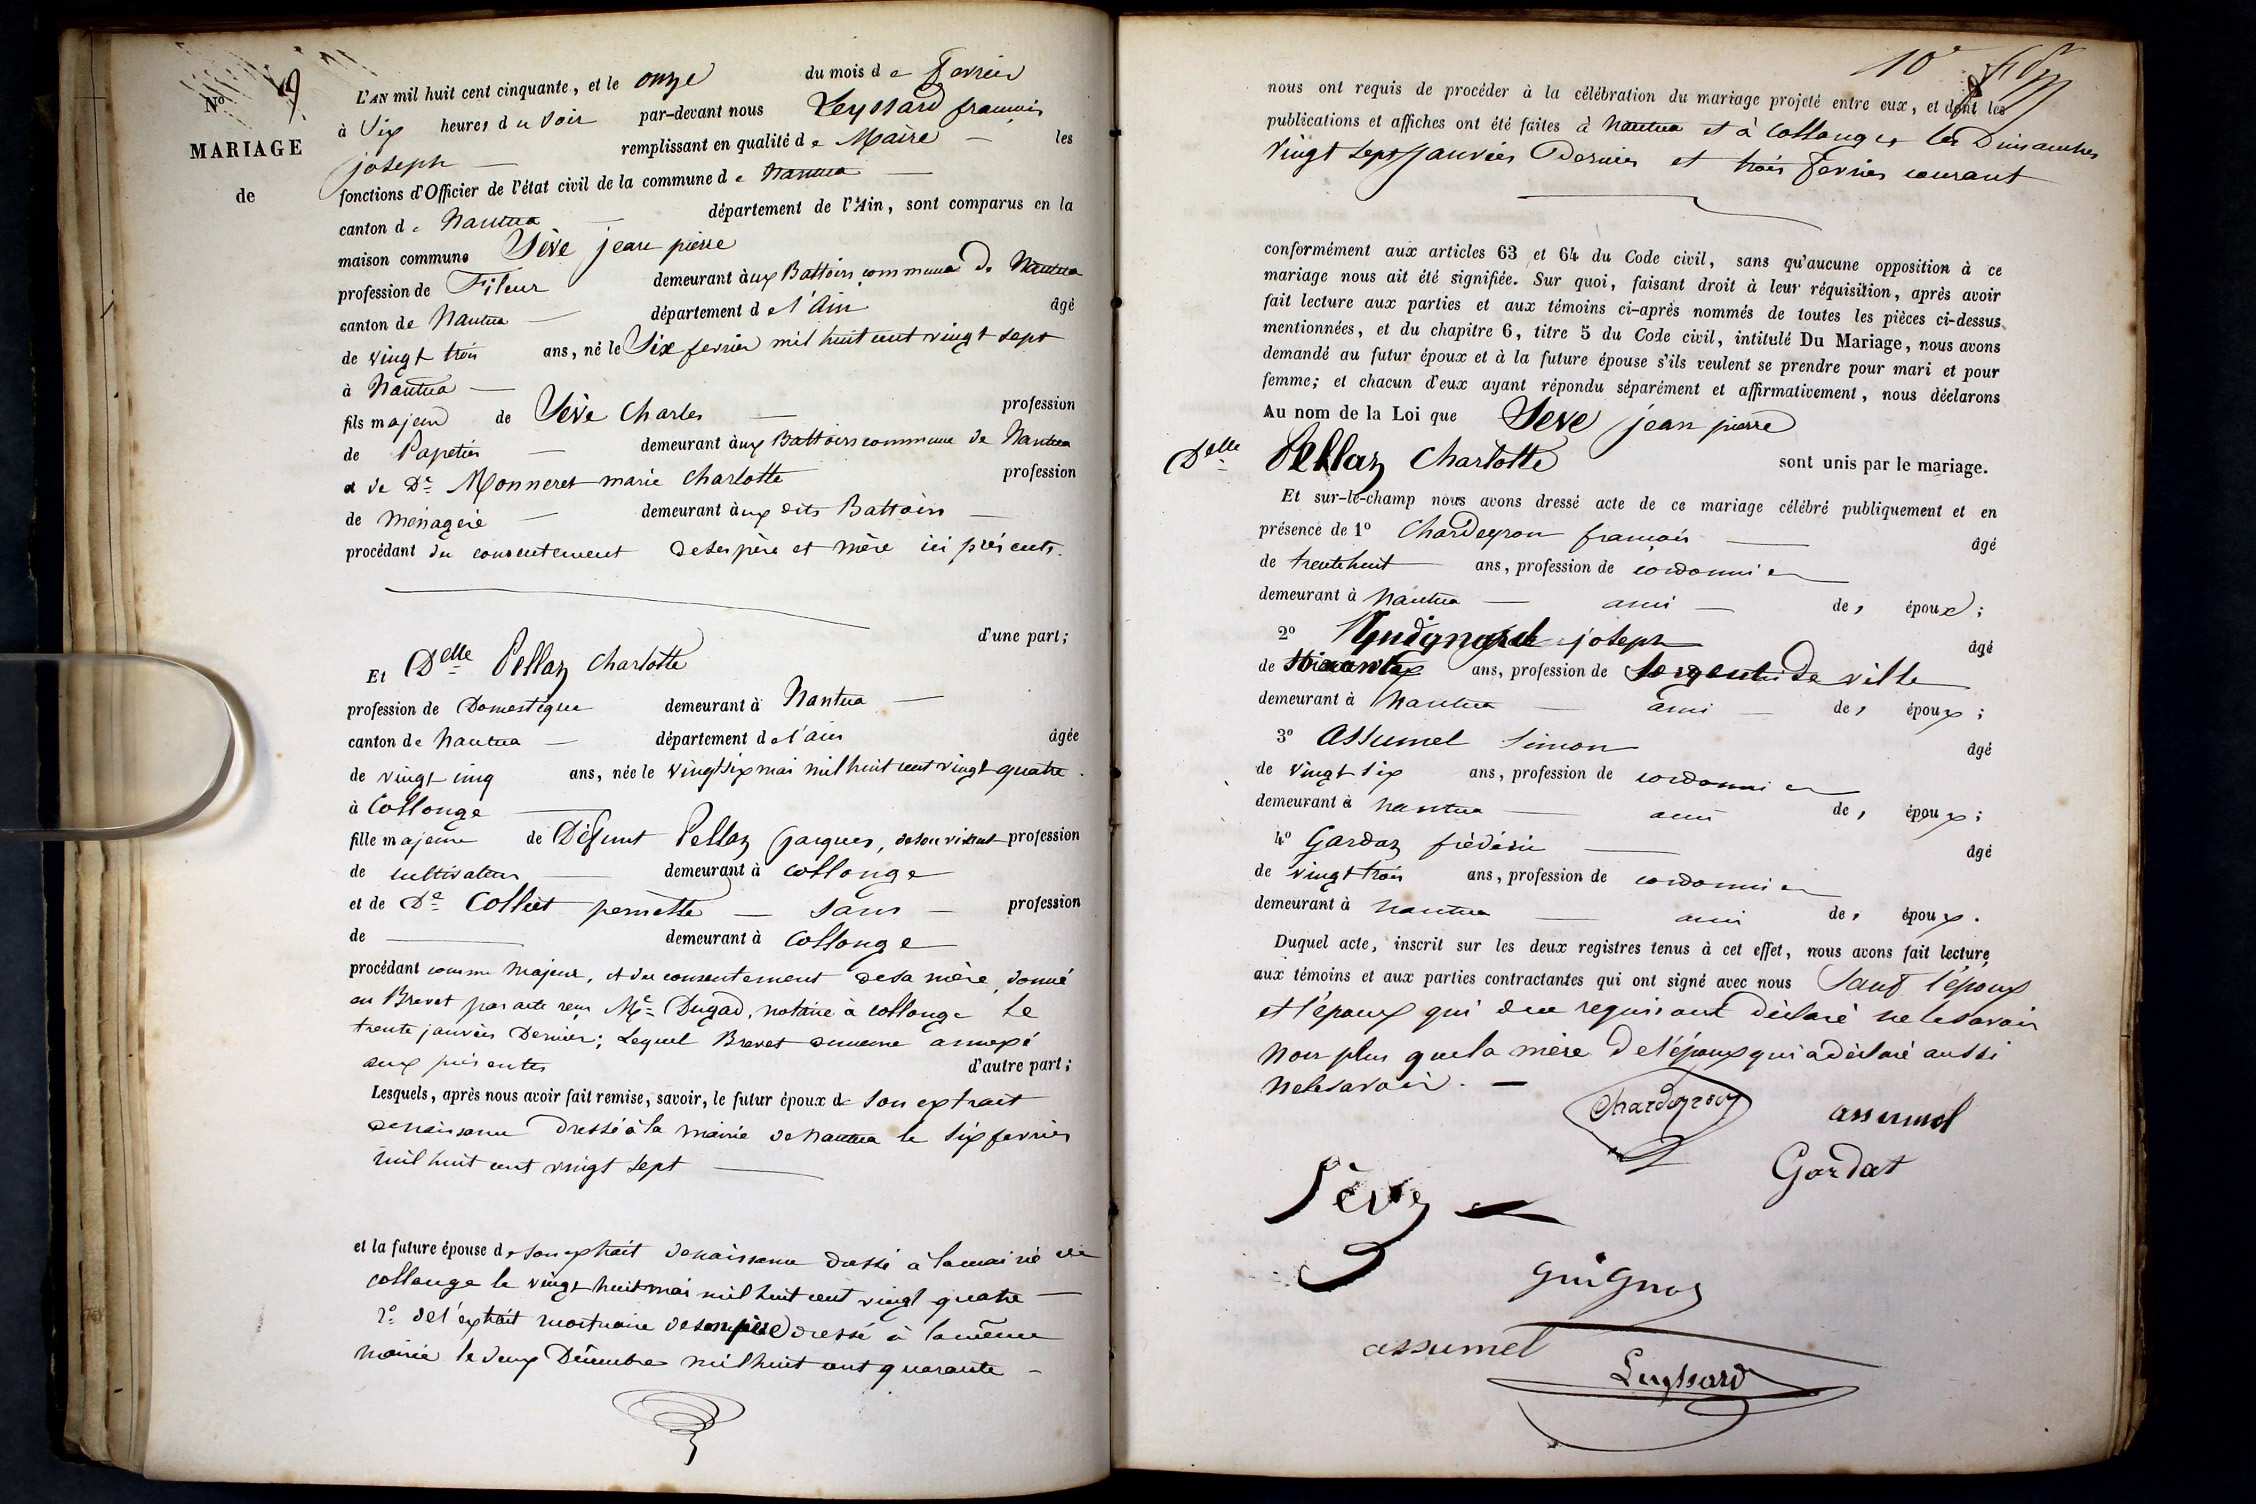 Nº 9
MARIAGE
de
L'AN mil huit cent cinquante, et le onze du mois de Fevrier
à Six heures du Soir par-devant nous Leyssard françois
joseph — remplissant en qualité de Maire — les
fonctions d'Officier de l'état civil de la commune de Nantua —
canton de Nantua — département de l'Ain, sont comparus en la
maison commune Sève jean pierre
profession de Fileur demeurant àux Battoirs commune de Nantua
canton de Nantua — département de l'Ain âgé
de vingt trois ans, né le Six fevrier mil huit cent vingt sept
à Nantua —
fils majeur de Sève Charles — profession
de Papetier — demeurant àux Battoirs commune de Nantua
et de De Monneret marie charlotte profession
de ménagère — demeurant àux dits Battoirs —
procédant du consentement de ses père et mère ici présents.
d'une part;
Et Delle Pellaz Charlotte
profession de Domestique demeurant à Nantua —
canton de Nantua — département de l'ain âgée
de vingt cinq ans, née le vingt six mai mil huit cent vingt quatre.
à Collonge —
fille majeure de Défunt Pellaz jacques, de son vivant profession
de cultivateur — demeurant à Collonge
et de De Collet pernette — sans — profession
de — demeurant à Collonge
procédant comme majeure, et du consentement de sa mère, donné
en Brevet par acte reçu Me Dugad, notaire à Collonge le
trente janvier Dernier; Lequel Brevet demeure annexé
aux présentes d'autre part;
Lesquels, après nous avoir fait remise, savoir, le futur époux de Son extrait
de naissance Dressé à la mairie de Nantua le Six fevrier
mil huit cent vingt sept —
et la future épouse de son extrait de naissance dressé à la mairie de
Collonge le vingt huit mai mil huit cent vingt quatre —
2º de l'extrait mortuaire de son père dressé à la même
mairie le deux Décembre mil huit cent quarante —
10e
nous ont requis de procéder à la célébration du mariage projeté entre eux, et dont les
publications et affiches ont été faites à Nantua et à Collonges les Dimanches
vingt sept janvier Dernier et trois fevrier courant
conformément aux articles 63 et 64 du Code civil, sans qu'aucune opposition à ce
mariage nous ait été signifiée. Sur quoi, faisant droit à leur réquisition, après avoir
fait lecture aux parties et aux témoins ci-après nommés de toutes les pièces ci-dessus
mentionnées, et du chapitre 6, titre 5 du Code civil, intitulé Du Mariage, nous avons
demandé au futur époux et à la future épouse s'ils veulent se prendre pour mari et pour
femme; et chacun d'eux ayant répondu séparément et affirmativement, nous déclarons
Au nom de la Loi que Seve jean pierre
Delle Pellaz Charlotte sont unis par le mariage.
Et sur-le-champ nous avons dressé acte de ce mariage célébré publiquement et en
présence de 1º Chardeyron françois — âgé
de trente huit ans, profession de cordonnier
demeurant à Nantua — ami — des époux;
2º joseph âgé
de ans, profession de Sergent de ville
demeurant à Nantua — ami — des époux;
3º Assumel Simon âgé
de vingt six ans, profession de cordonnier
demeurant à Nantua — ami des époux;
4º Gardaz frédéric — âgé
de vingt trois ans, profession de cordonnier
demeurant à Nantua — ami des époux.
Duquel acte, inscrit sur les deux registres tenus à cet effet, nous avons fait lecture
aux témoins et aux parties contractantes qui ont signé avec nous Sauf l'époux
et l'épouse qui de ce requis ont Déclaré ne le savoir
Non plus que la mère de l'époux qui a déclaré aussi
ne le savoir. —
Chardeyron
assumel
Gardat
Sève
Guignos
assumel
Leyssard